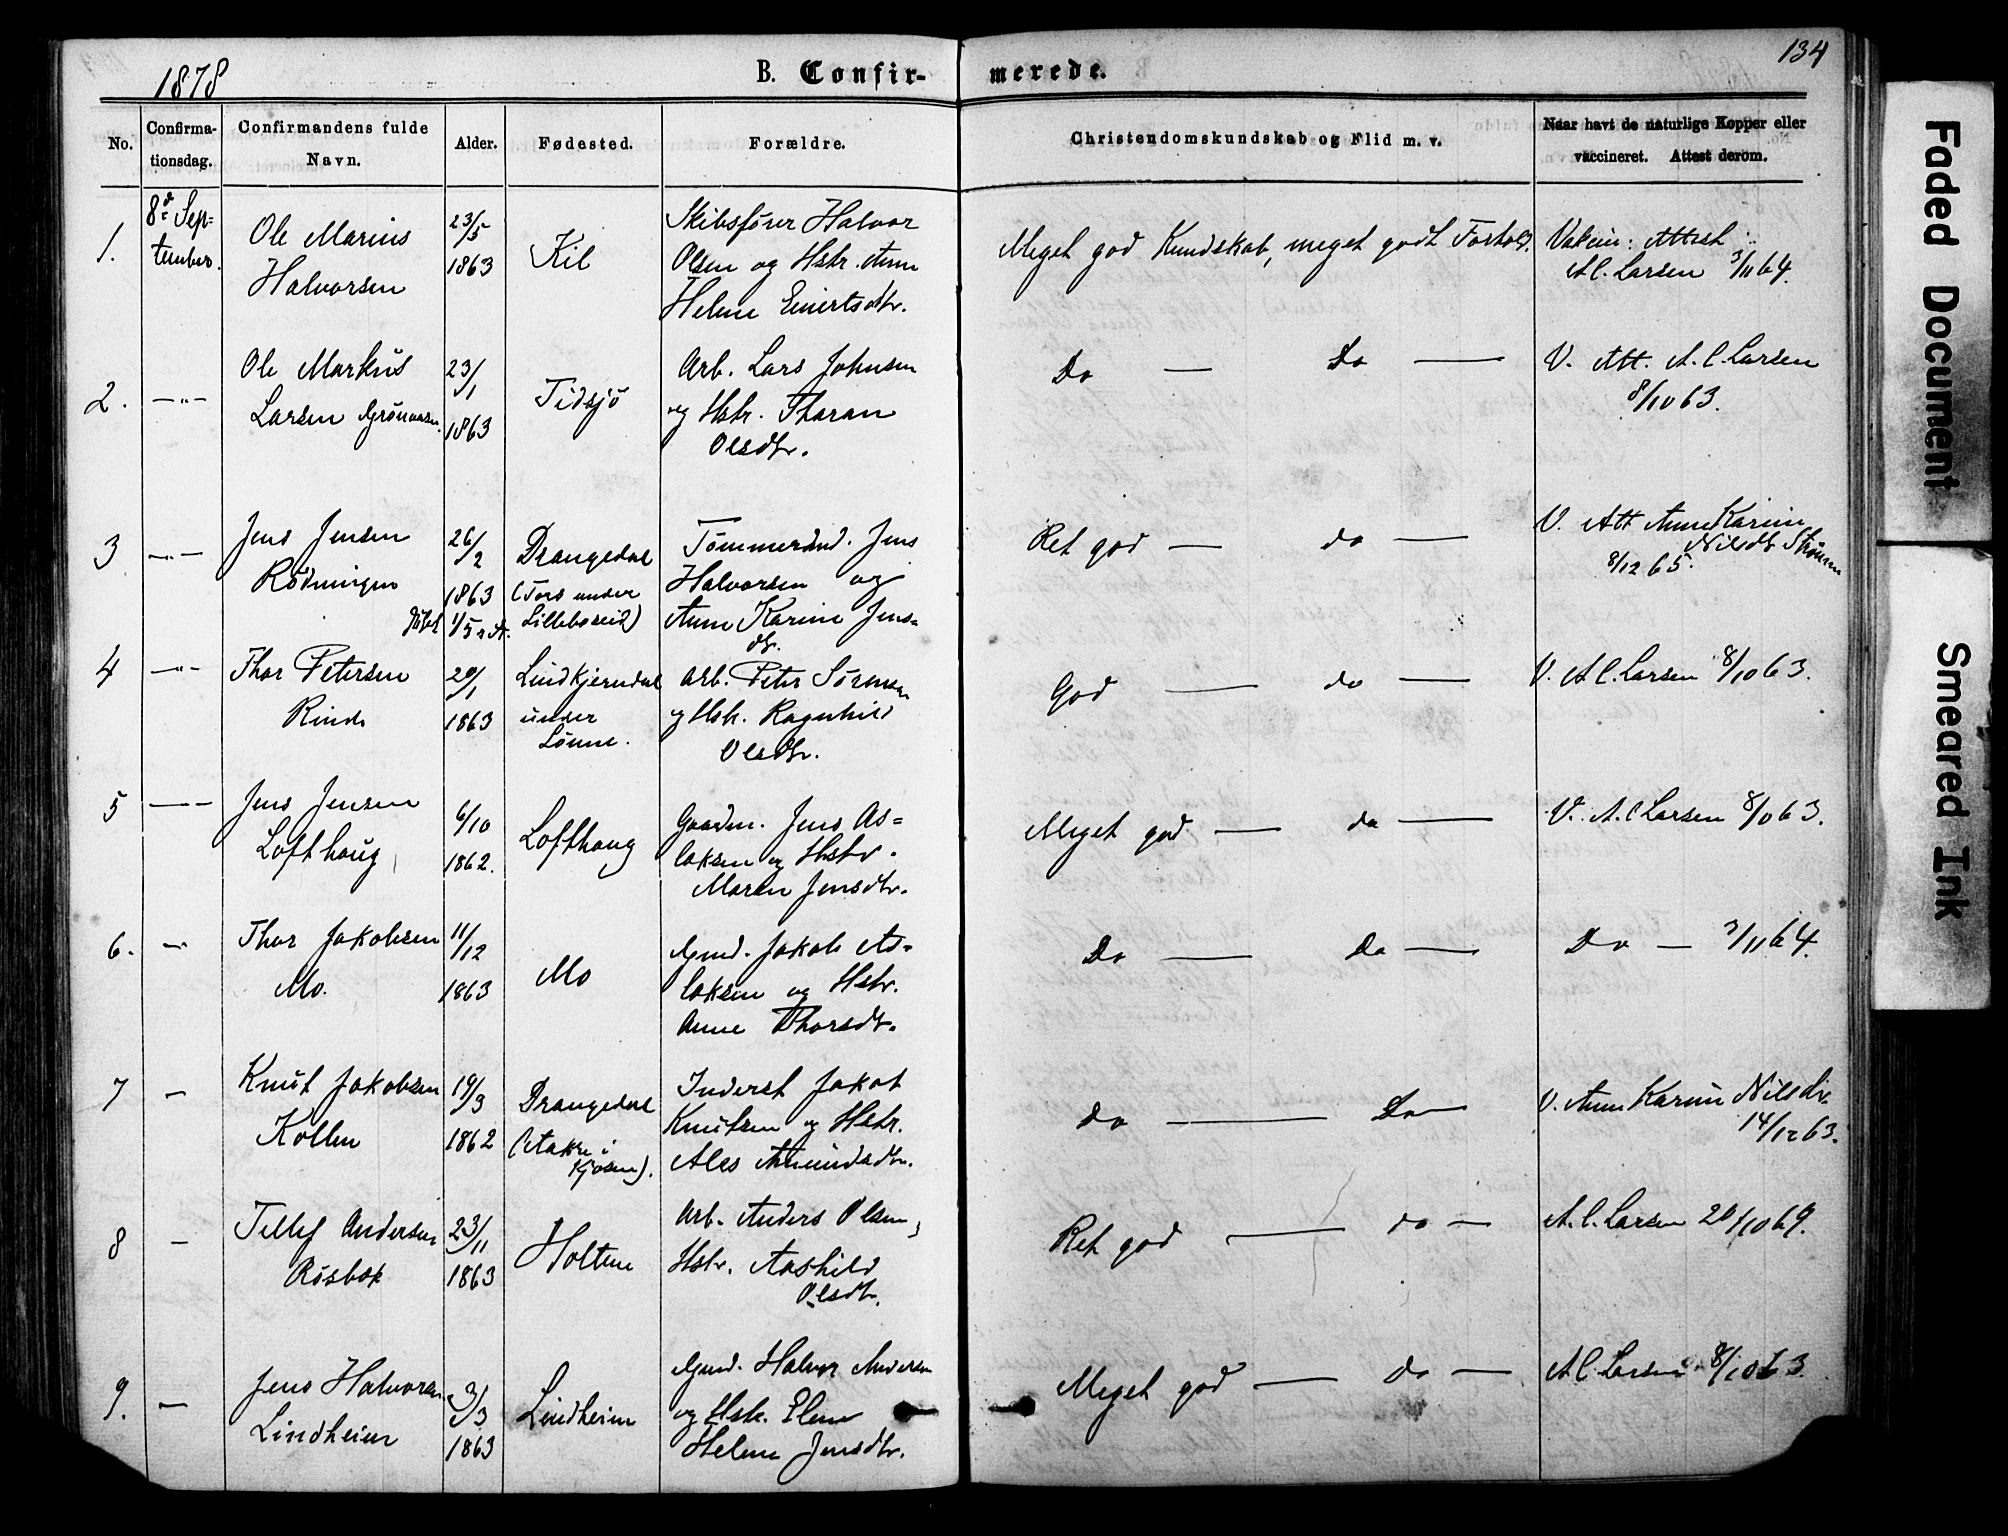 1878
B. Confir-
merede.
134
No.
Confirma-
tionsdag.
Confirmandens fulde
Navn.
Alder.
Fødested.
Forældre.
Christendomskundskab og Flid m. v.
Naar havt de naturlige Kopper eller
vaccineret. Attest derom.
1.
8de Sep=
tember.
Ole Marius
Halvorsen
23/5
1863
Kil
Skibsfører Halvor
Olsen og Hstr. Anne
Helene Eivertsdtr.
Meget god Kundskab, meget godt Forhold.
Vakcin: Attest
A C. Larsen 3/11 64.
2.
—"—
Ole Markus
Larsen Grønaasen
23/1
1863
Tidsjø
Arb. Lars Johnsen
og Hstr. Tharan
Olsdtr.
Do — Do —
V. Att. A. C. Larsen
8/10 63.
3
—"—
Jens Jensen
Rødningen
26/2
1863
Drangedal
(Tors under
Lilleboseid)
Tømmermd. Jens
Halvorsen og
Anne Karine Jens=
dtr.
Ret god — do —
V. Att Anne Karine
Nilsdtr Strømm
8/12 65.
4
—"—
Thor Petersen
Rinde
20/1
1863
Lindkjerndal
under
Lønne.
Arb. Peter Sørensen
og Hstr. Ragnhild
Olsdtr.
God — do —
V. A C. Larsen 8/10 63.
5
—
Jens Jensen
Lofthaug
6/10
1862.
Lofthaug
Gaardm. Jens As=
laksen og Hstr.
Maren Jensdtr.
Meget god — do —
V. A. C Larsen 8/10 63.
6.
—"—
Thor Jakobsen
Mo.
11/12
1863
Mo
Gmd. Jakob As=
laksen og Hstr.
Anne Thorsdtr.
Do — Do —
Do — 3/11 64.
7
—
Knut Jakobsen
Kollen
19/3
1862
Drangedal
(Aakre i
Kjøsen).
Inderst Jakob
Knutsen og Hstr.
Ales Amundsdtr.
do — Do —
V. Anne Karine Nilsdtr.
14/12 63.
8
—
Tellef Andersen
Røsbæk
23/11
1863
Holtene
Arb. Anders Olsen,
Hstr. Aashild
Olsdtr.
Ret god — do —
A. C. Larsen 20/10 69.
9.
—
Jens Halvorsen
Lindheim
3/3
1863
Lindheim
Gmd. Halvor Andersen
og Hstr. Elen
Helene Jensdtr.
Meget god — do —
A C. Larsen 8/10 63.
Faded Document
Smeared Ink